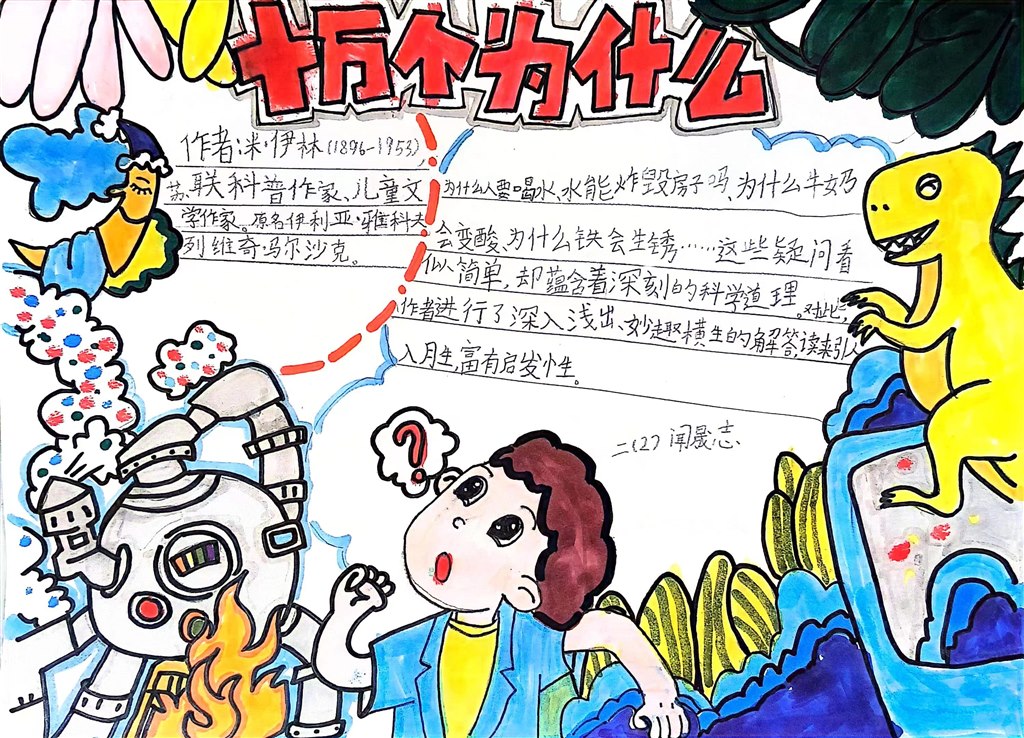 十万个为什么
作者:米·伊林(1896-1953),
苏联科普作家、儿童文
学作家。原名伊利亚·雅科夫
列维奇·马尔沙克。
为什么人要喝水、水能炸毁房子吗、为什么牛奶
会变酸、为什么铁会生锈……这些疑问看
似简单,却蕴含着深刻的科学道理。对此,
作者进行了深入浅出、妙趣横生的解答,读来引人
入胜,富有启发性。
二(2) 闻晟志
?